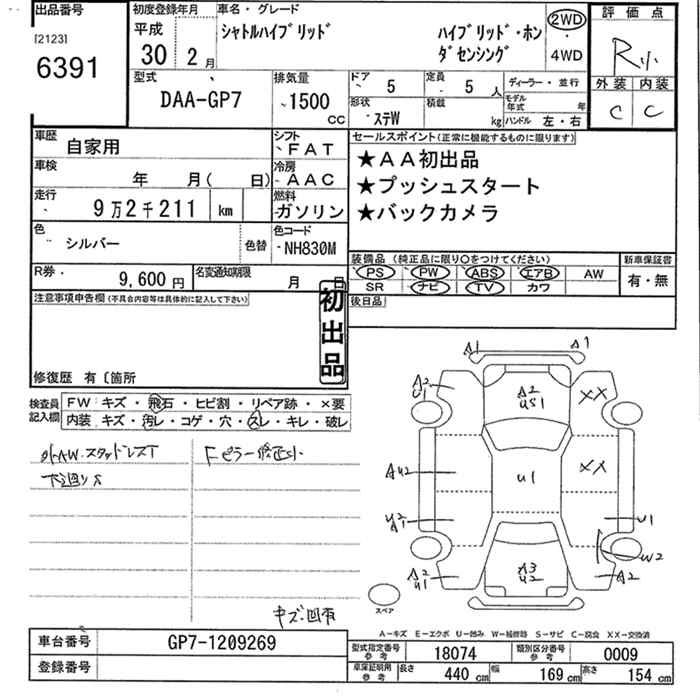 出品番号
[2123]
6391
初度登録年月
平成
30 2月
車名・グレード
シャトルハイブリッド
ハイブリッド・ホン
ダセンシング
2WD
4WD
評価点
R
外装 内装
C C
型式
DAA-GP7
排気量
1500
CC
ドア
5
定員
5人
形状
ステW
積載
kg
ディーラー・並行
モデル年式 年
ハンドル 左・右
車歴
自家用
シフト
FAT
車検
年 月( 日)
冷房
AAC
走行
9万2千211 km
燃料
ガソリン
色
シルバー
色替
色コード
NH830M
R券
9,600円
名変通知期限
月 日
セールスポイント(正常に機能するものに限ります)
★AA初出品
★プッシュスタート
★バックカメラ
装備品(純正品に限り○をつけてください)
PS PW ABS エアB AW
SR ナビ TV カワ
新車保証書
有・無
後日品
注意事項申告欄(不具合内容等は具体的に記入して下さい)
初出品
修復歴 有〔箇所
検査員記入欄
FW キズ・飛石・ヒビ割・リペア跡・×要
内装 キズ・汚レ・コゲ・穴・スレ・キレ・破レ
下廻り
Fピラー修正
キズ・凹有
A1 A1
A2
U1
A2
US1
XX
AU2
U1
XX
U2
A1
U1
W2
A2
U1
A3
U2
A2
スペア
A-キズ E-エクボ U-凹み W-補修跡 S-サビ C-腐食 XX-交換済
車台番号
GP7-1209269
登録番号
型式指定番号
参考
18074
類別区分番号
参考
0009
車庫証明用
参考
長さ
440 cm
幅
169 cm
高さ
154 cm